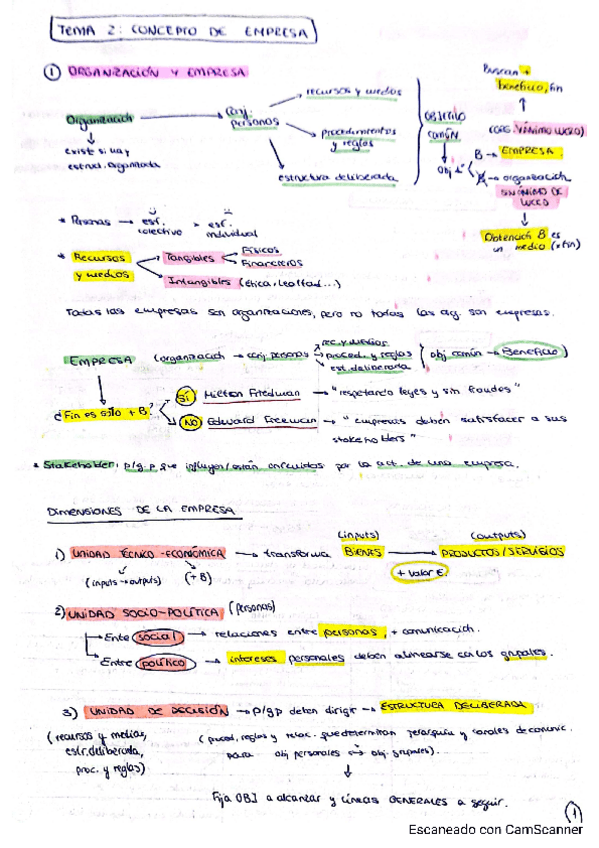 TEMA 2: CONCEPTO DE EMPRESA
① ORGANIZACIÓN Y EMPRESA
Organización → conj. personas
existe si hay estruct. organizada
→ recursos y medios
→ procedimientos y reglas
→ estructura deliberada
OBJETIVO COMÚN
obj
B → EMPRESA
B → organización
SINÓNIMO DE LUCRO
(ÁNIMO LUCRO)
Buscan + beneficio, fin
Obtención B es un medio (≠ fin)
* Personas → esf. colectivo > esf. individual
* Recursos y medios
Tangibles
Físicos
Financieros
Intangibles (ética, lealtad...)
Todas las empresas son organizaciones, pero no todas las org. son empresas.
EMPRESA (organización → conj. personas
rec. y medios
proced. y reglas
est. deliberada
obj común → Beneficio)
¿Fin es sólo + B?
SÍ Milton Friedman → "respetando leyes y sin fraudes"
NO Edward Freeman → "empresas deben satisfacer a sus stakeholders"
* Stakeholder: p/g.p que influyen/están influidas por la act. de una empresa.
DIMENSIONES DE LA EMPRESA
1) UNIDAD TÉCNICO-ECONÓMICA → transforma BIENES → PRODUCTOS/SERVICIOS
(inputs) (outputs)
(inputs → outputs) (+ B)
+ valor €.
2) UNIDAD SOCIO-POLÍTICA (personas)
Ente social → relaciones entre personas, + comunicación.
Ente político → intereses personales deben alinearse con los grupales.
3) UNIDAD DE DECISIÓN → p/gp deben dirigir → ESTRUCTURA DELIBERADA
(recursos y medios, estr. deliberada, proc. y reglas)
(proced, reglas y relac. que determinan jerarquía y canales de comunic.
para obj personales → obj. grupales).
Fija OBJ a alcanzar y LÍNEAS GENERALES a seguir.
1
Escaneado con CamScanner